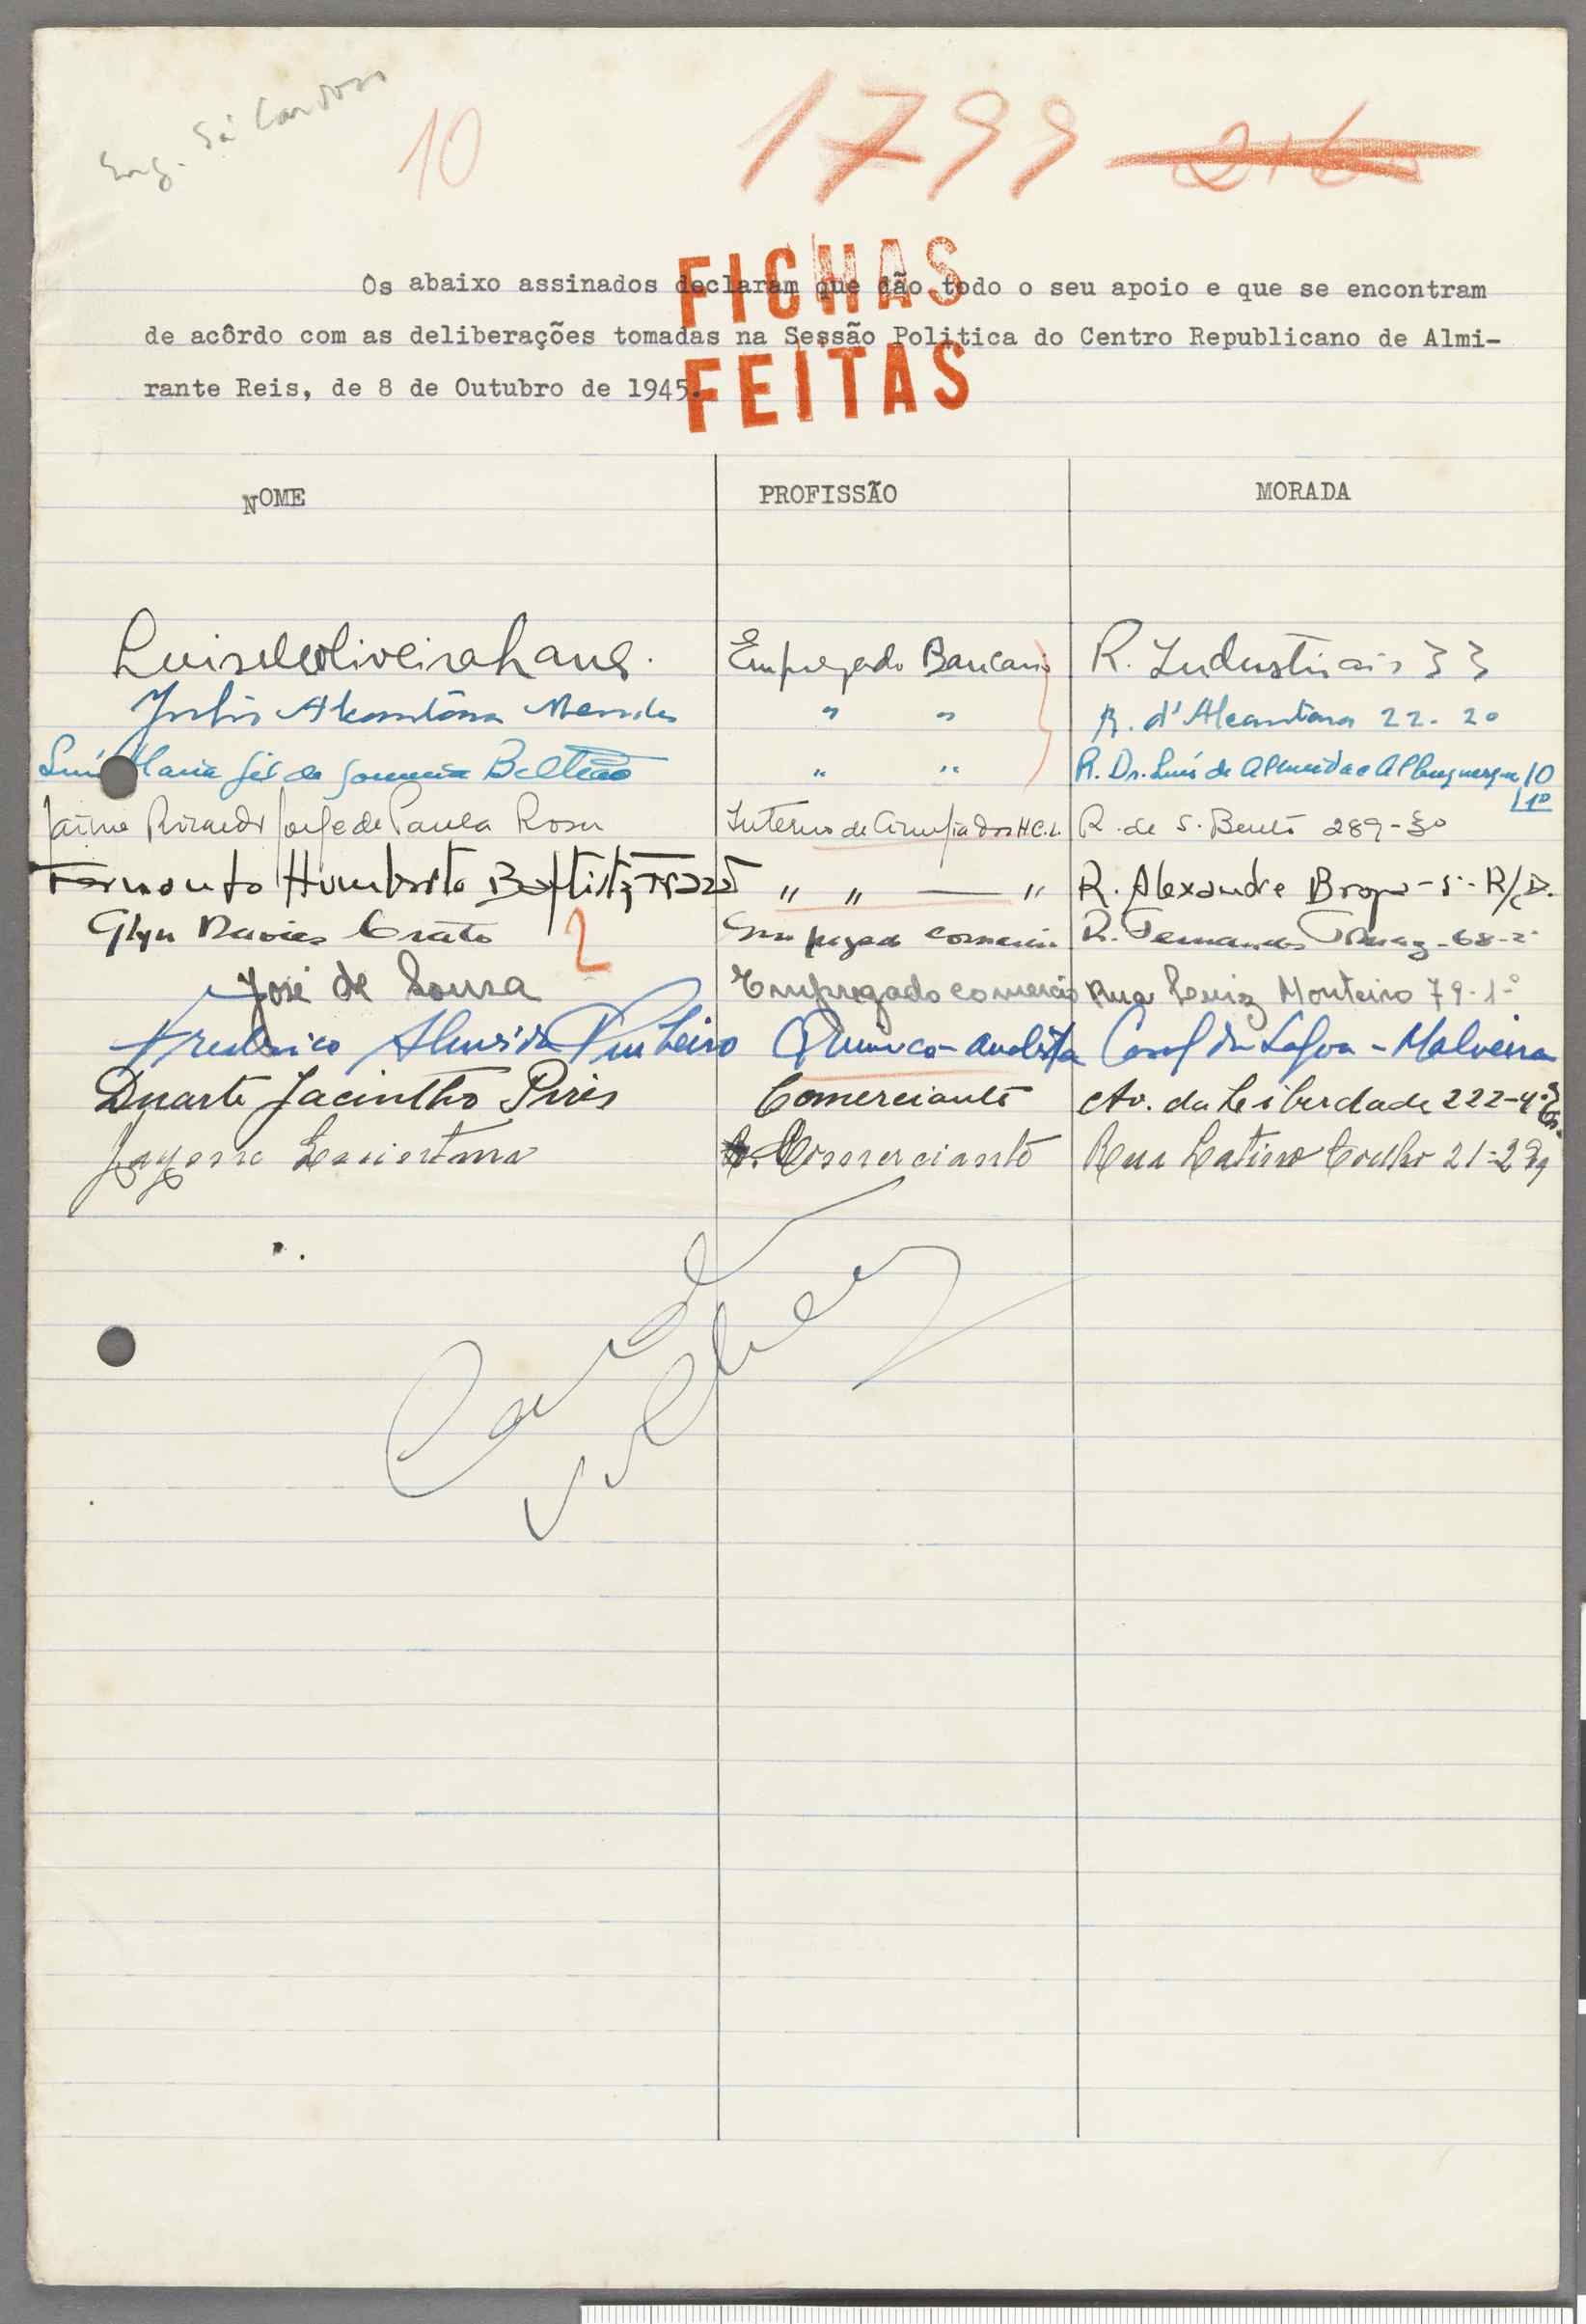 Eng. Sá Cardoso
10 1799
FICHAS
FEITAS
Os abaixo assinados declaram que dão todo o seu apoio e que se encontram
de acôrdo com as deliberações tomadas na Sessão Politica do Centro Republicano de Almi-
rante Reis, de 8 de Outubro de 1945.
NOME PROFISSÃO MORADA
Luis de Oliveira Empregado Bancario R. Industriais 33
Alcantara Mendes " " R. d'Alcantara 22-2º
Luís Maria Gil de Beltrão " " R. Dr. Luís de Almeida e Albuquerque 10
1º
Jaime Ricardo Jorge de Paula Rosa Interno de Cirurgia dos H.C.L. R. de S. Bento 289-3º
Fernando Humberto Baptista " " — " R. Alexandre Braga-5-R/D.
Glyn Davies Crato Empregado comercio R. Fernandes 68-2º
2
José de Sousa Empregado comercio Rua Luiz Monteiro 79-1º
Frederico Almeida Pinheiro Quimico-analista Casal da - Malveira
Duarte Jacintho Pires Comerciante Av. da Liberdade 222-4º
Comerciante Rua Latino Coelho 21-2º